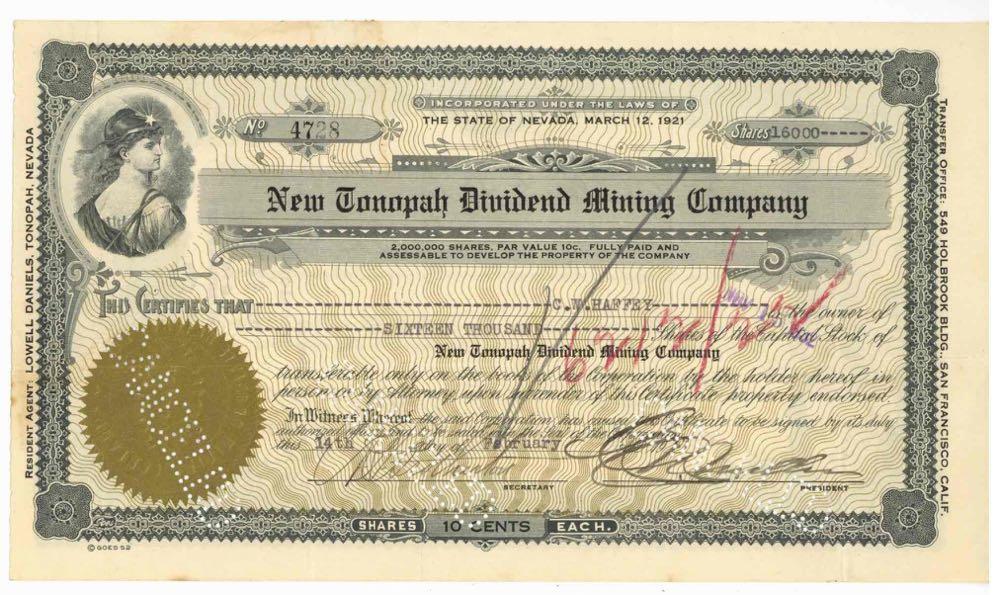 INCORPORATED UNDER THE LAWS OF
THE STATE OF NEVADA, MARCH 12, 1921
No. 4728
Shares 16000-----
New Tonopah Dividend Mining Company
2,000,000 SHARES, PAR VALUE 10c. FULLY PAID AND
ASSESSABLE TO DEVELOP THE PROPERTY OF THE COMPANY
THIS CERTIFIES THAT C.W.HAFFEY is the owner of
SIXTEEN THOUSAND Shares of the Capital Stock of
New Tonopah Dividend Mining Company
transferable only on the books of the Corporation by the holder hereof in
person or by Attorney upon surrender of this Certificate properly endorsed.
In Witness Whereof, the said Corporation has caused this Certificate to be signed by its duly
authorized officers and to be sealed with the Seal of the Corporation
this 14th day of February
SECRETARY
PRESIDENT
SHARES 10 CENTS EACH.
© GOES 52
RESIDENT AGENT: LOWELL DANIELS, TONOPAH, NEVADA
TRANSFER OFFICE: 549 HOLBROOK BLDG., SAN FRANCISCO, CALIF.